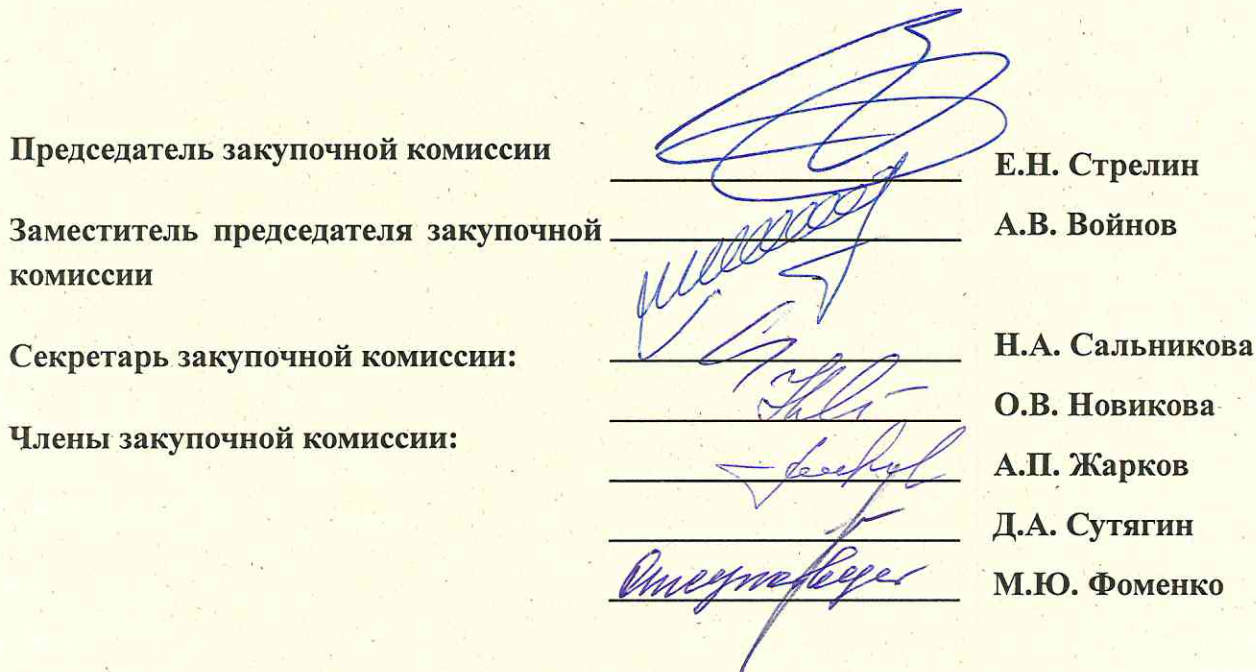 Председатель закупочной комиссии
Е.Н. Стрелин
Заместитель председателя закупочной
комиссии
А.В. Войнов
Секретарь закупочной комиссии:
Н.А. Сальникова
О.В. Новикова
Члены закупочной комиссии:
А.П. Жарков
Д.А. Сутягин
Отсутствует
М.Ю. Фоменко